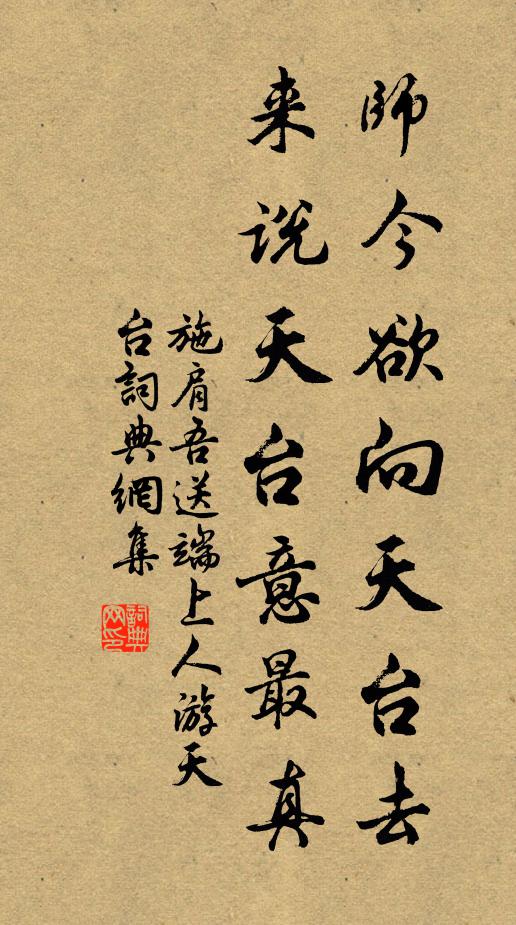 師今欲向天台去
来说天台意最真
施肩吾送端上人游天
台詞典網集
詞典
网印